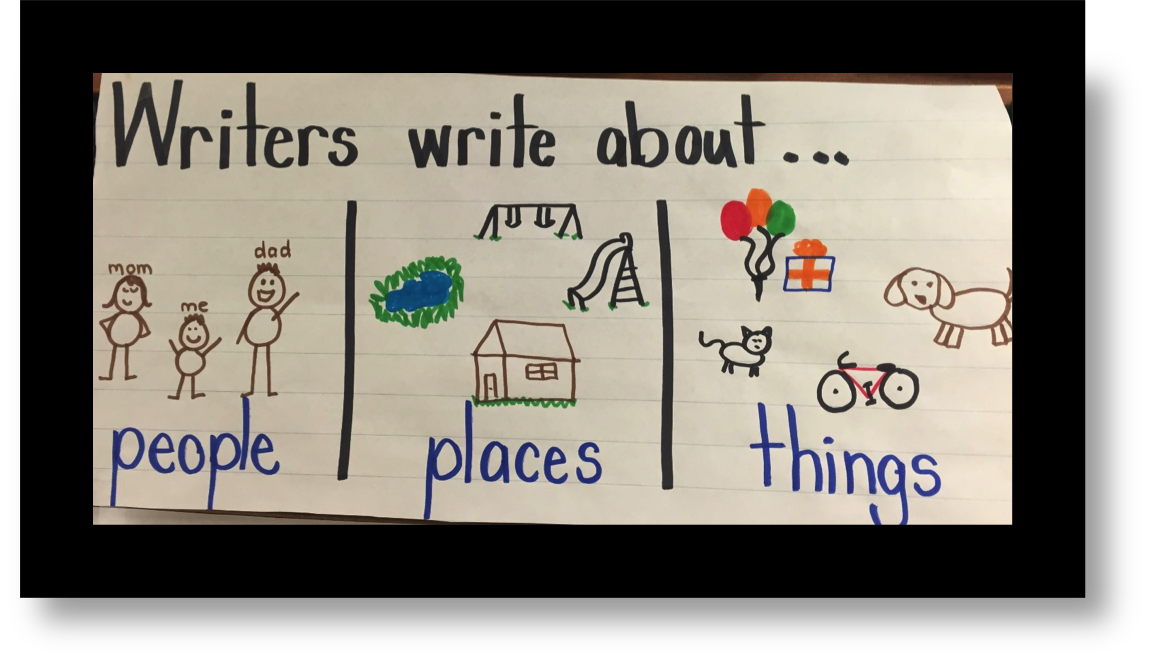 Writers write about...
dad
mom
me
people
places
things